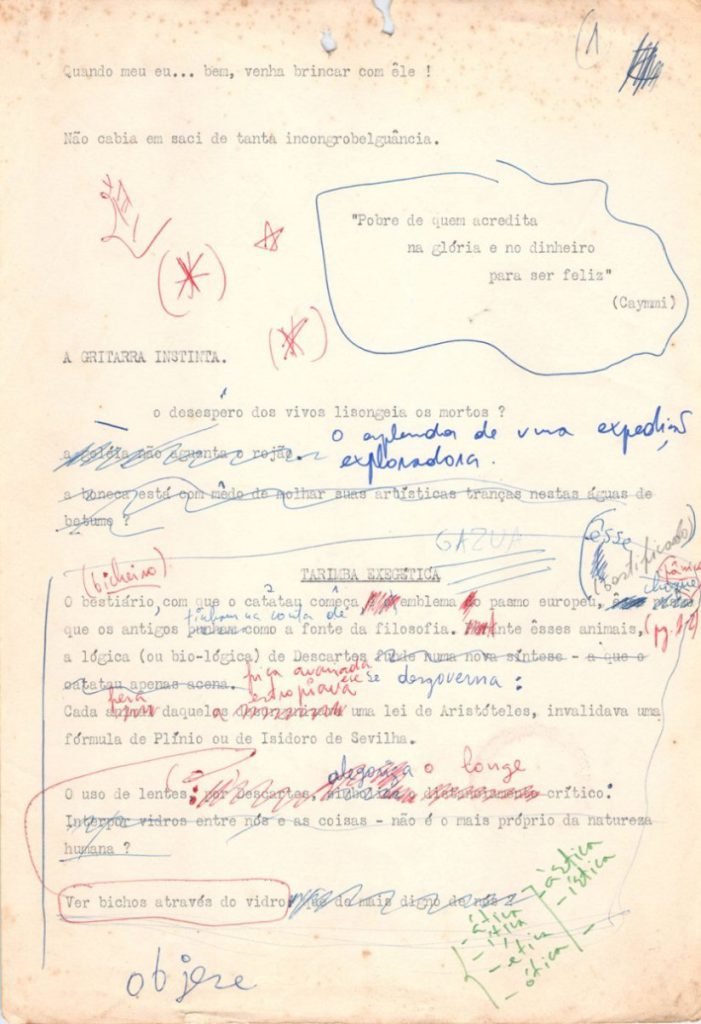 (1
Quando meu eu... bem, venha brincar com êle !
Não cabia em saci de tanta incongrobelguância.
"Pobre de quem acredita
na glória e no dinheiro
para ser feliz"
(Caymmi)
A GRITARRA INSTINTA.
o desespêro dos vivos lisongeia os mortos ?
o esplendor de uma expedição
exploradora.
a goléia não aguenta o rojão.
a boneca está com mêdo de molhar suas artísticas tranças nestas águas de
betume ?
GAZUA
êsse
(bicheiro)
(sortificado)
TARIMBA EXEGÉTICA
pânico
choque
O bestiário, com que o catatau começa emblema o pasmo europeu,
tinham na conta de
que os antigos punham como a fonte da filosofia. ante êsses animais,
a lógica (ou bio-lógica) de Descartes numa nova síntese - a que o
fica avariada
catatau apenas acena. e se desgoverna :
pera entropiava
Cada daquelas a uma lei de Aristóteles, invalidava uma
fórmula de Plínio ou de Isidoro de Sevilha.
alegoriza o longe
O uso de lentes, por Descartes, distanciamento crítico:
Interpor vidros entre nós e as coisas - não é o mais próprio da natureza
humana ?
- ástica
- ística
Ver bichos através do vidro: de mais digno de nós ?
- ática
- ítica
- ética
- ótica
objere